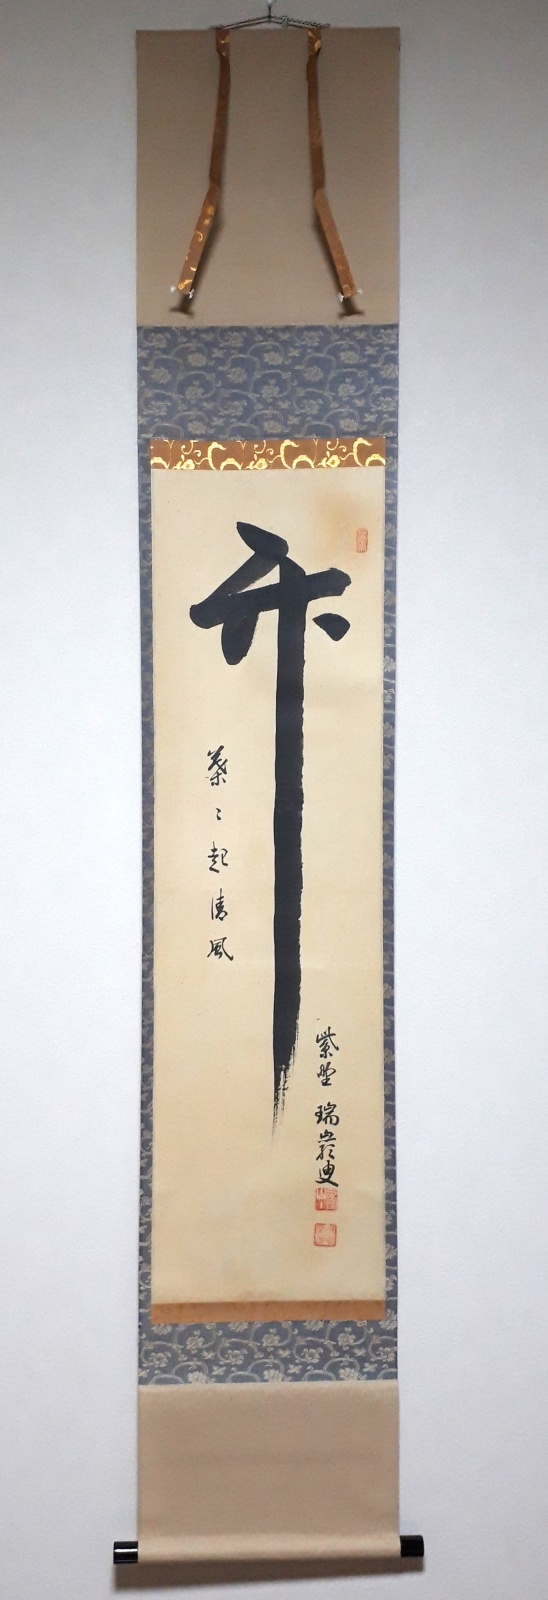 竹
葉々起清風
紫野 瑞巌叟